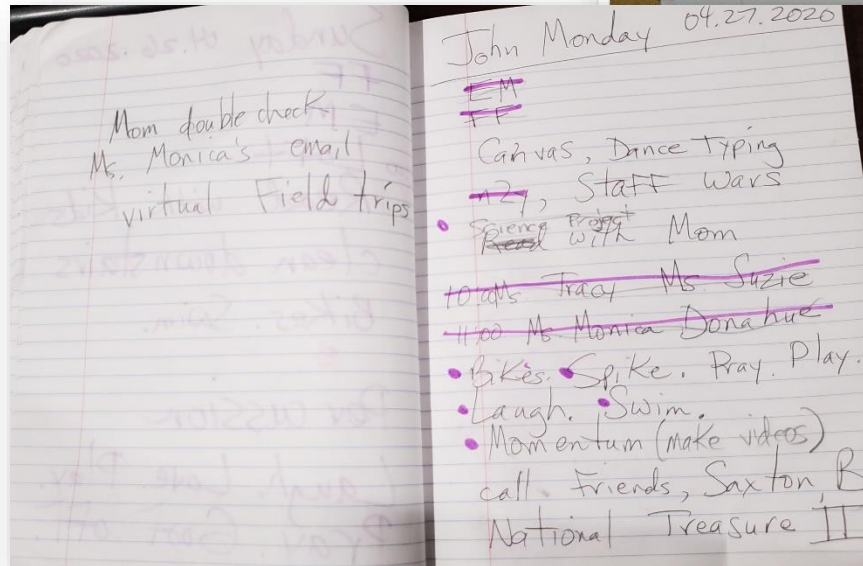 Mom double check
Ms. Monica's email
virtual Field trips
John Monday 04.27.2020
EM
FF
Canvas, Dance Typing
n2y, Staff Wars
Science Project
Read with Mom
10:00 Ms. Tracy Ms. Suzie
11:00 Ms. Monica Donahue
Bikes. Spike. Pray. Play.
Laugh. Swim.
Momentum (make videos)
call. Friends, Saxton, B
National Treasure II